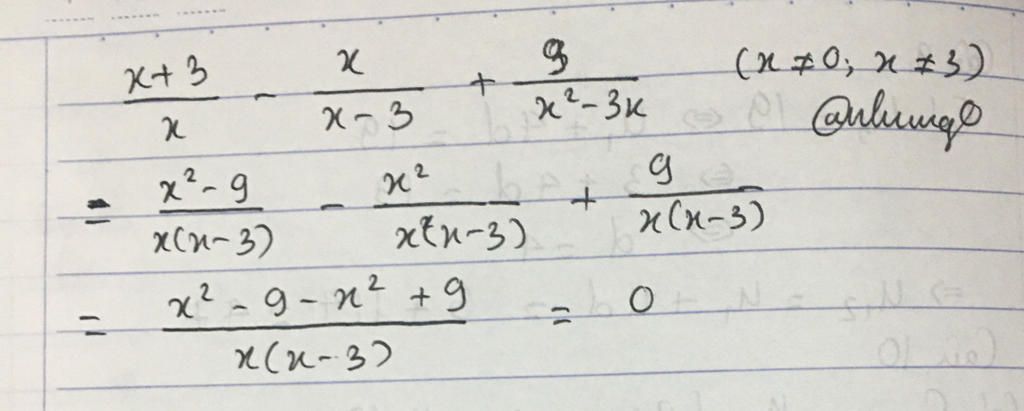 (x+3)/x - x/(x-3) + 9/(x²-3x) (x ≠ 0; x ≠ 3)
= (x²-9)/(x(x-3)) - x²/(x(x-3)) + 9/(x(x-3))
= (x²-9-x²+9)/(x(x-3)) = 0